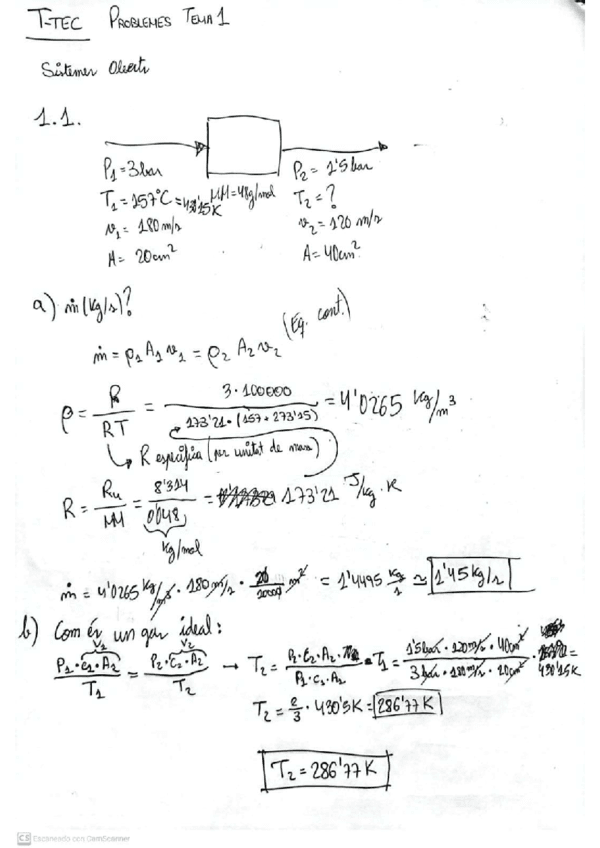 T-TEC PROBLEMES TEMA 1
Sistemes Oberts
1.1.
P₁ = 3 bar
T₁ = 157°C = 430'15K
MM = 48g/mol
v₁ = 180 m/s
A = 20cm²
P₂ = 1'5 bar
T₂ = ?
v₂ = 120 m/s
A = 40cm²
a) ṁ (kg/s)?
(Eq. cont.)
ṁ = ρ₁ A₁ v₁ = ρ₂ A₂ v₂
ρ = P/RT = 3·100000 / 173'21·(157+273'15) = 4'0265 kg/m³
↳ R específica (per unitat de massa)
R = Ru/MM = 8'314/0'048 = 173'21 J/kg·K
kg/mol
ṁ = 4'0265 kg/m³ · 180 m/s · 20/10000 m² = 1'4495 kg/s ≃ 1'45 kg/s
b) Com és un gas ideal:
V₁ V₂
P₁·c₁·A₂/T₁ = P₂·c₂·A₂/T₂ → T₂ = P₂·c₂·A₂/P₁·c₁·A₁ · T₁ = 1'5bar·120m/s·40cm² / 3bar·180m/s·20cm² · 430'15K =
T₂ = 2/3 · 430'5K = 286'77K
T₂ = 286'77 K
CS Escaneado con CamScanner